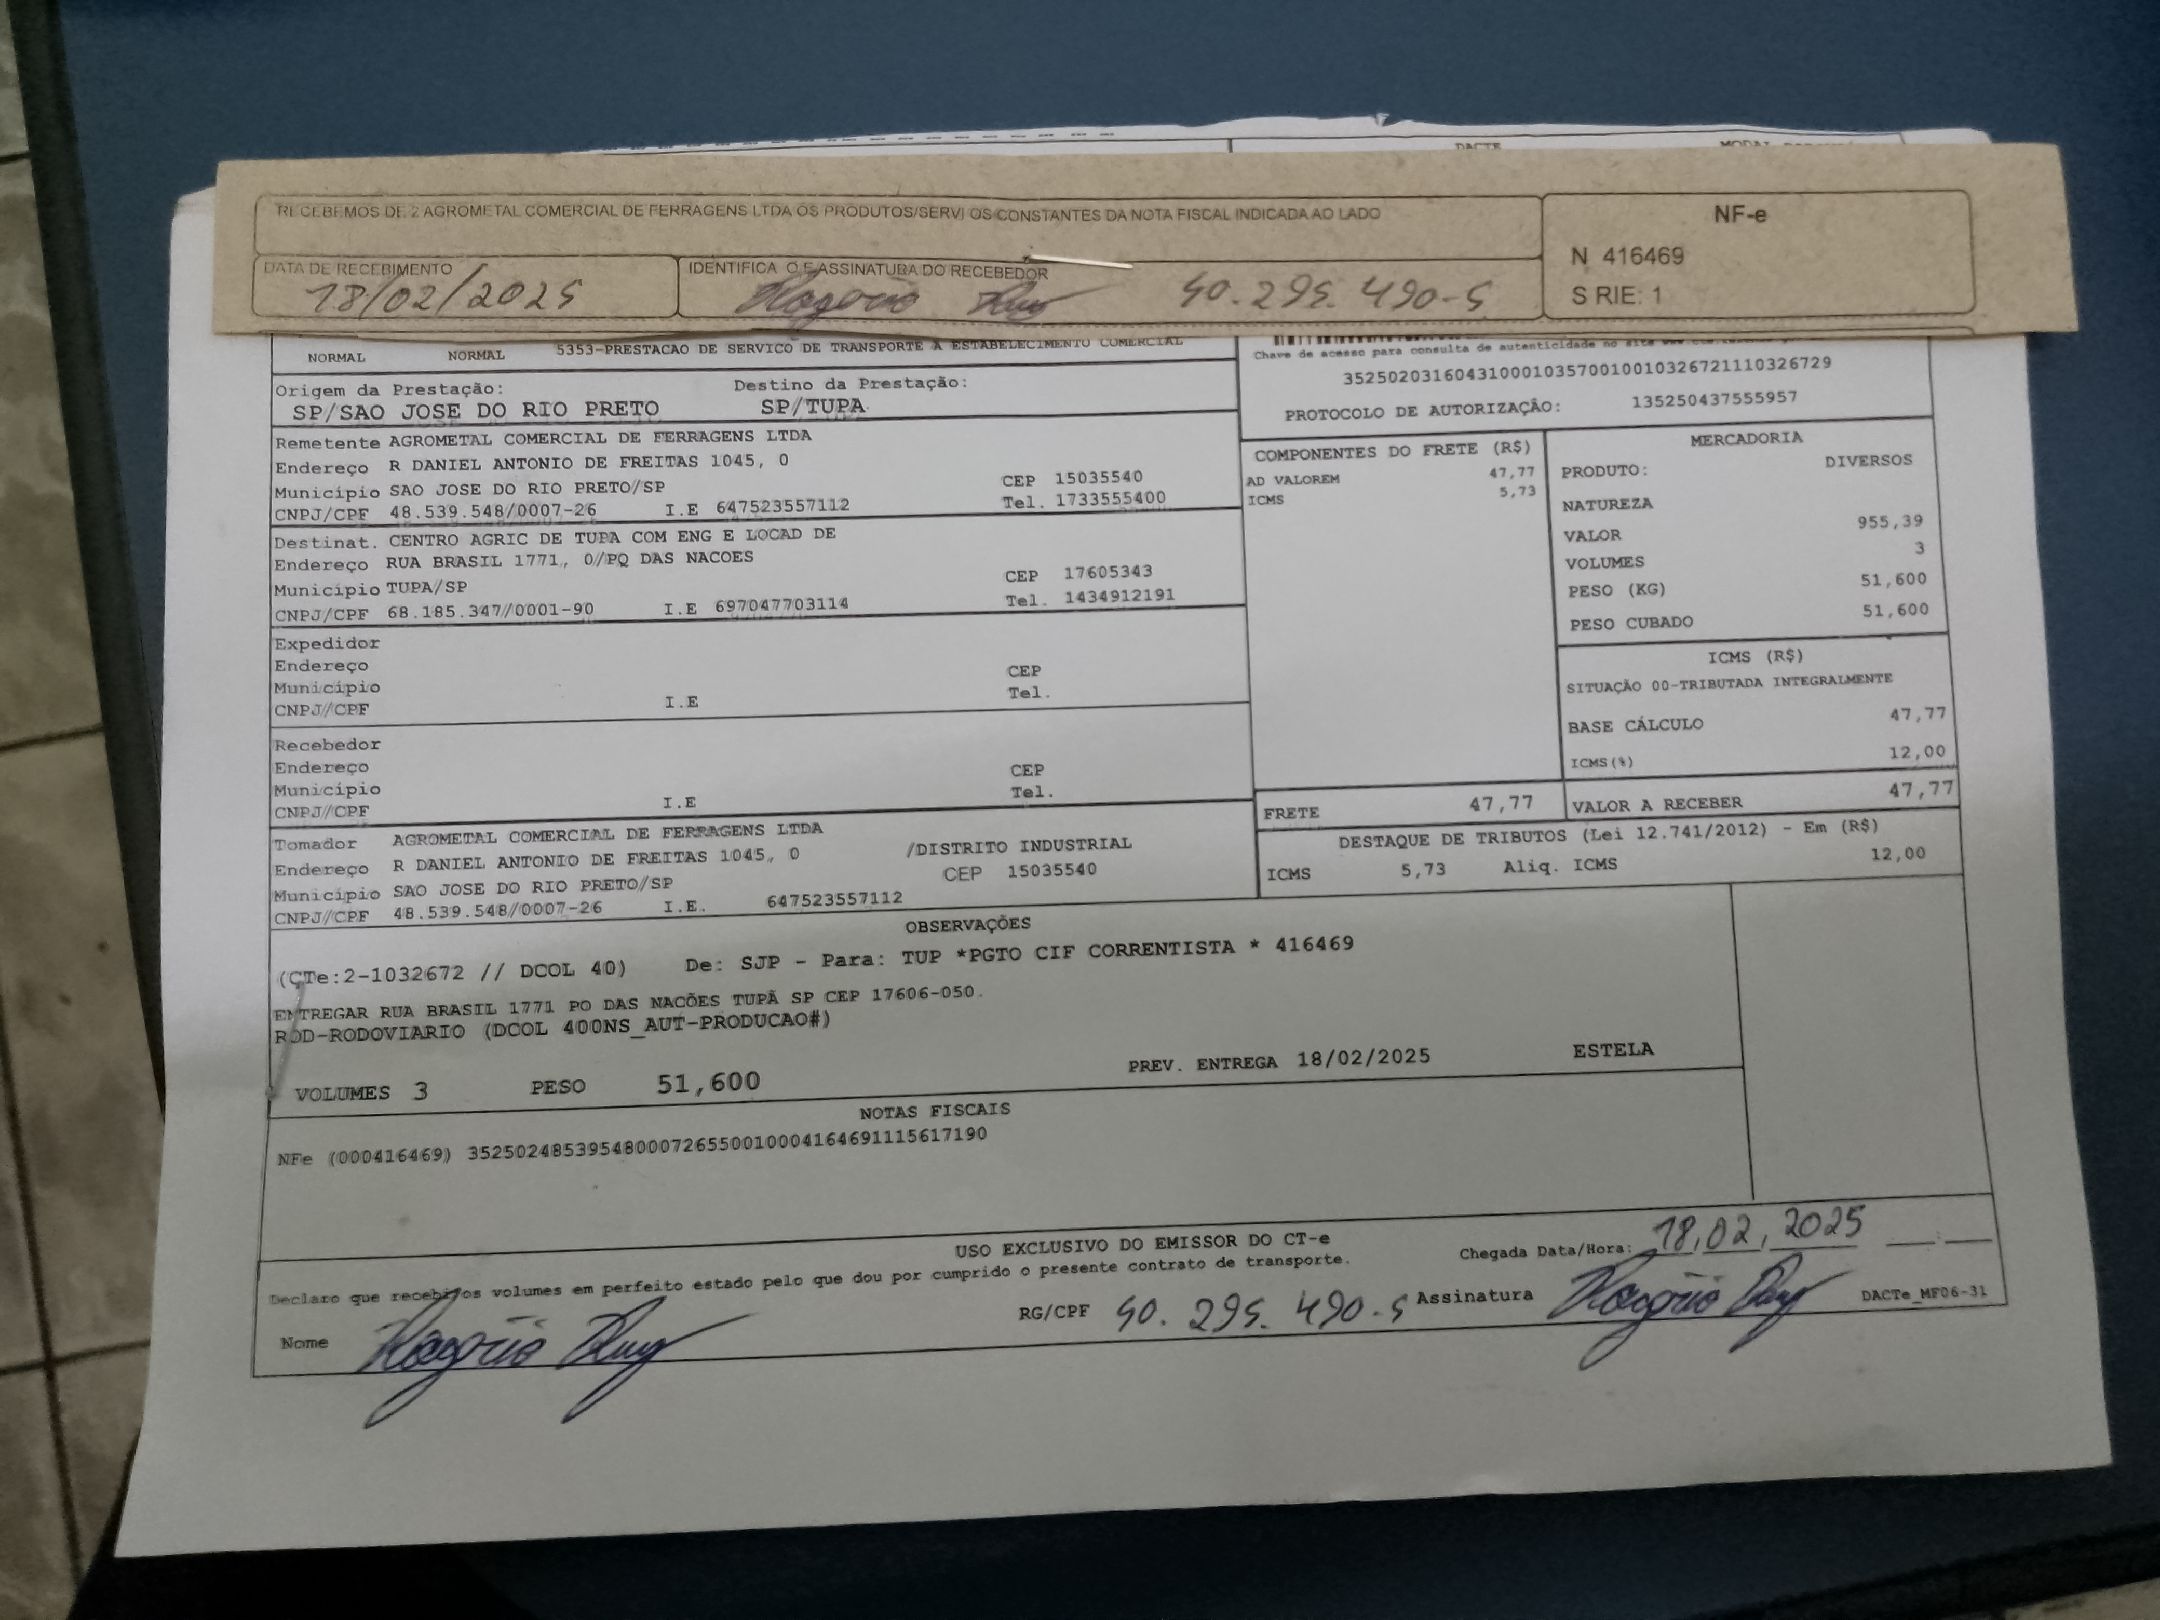 RECEBEMOS DE 2 AGROMETAL COMERCIAL DE FERRAGENS LTDA OS PRODUTOS/SERVI OS CONSTANTES DA NOTA FISCAL INDICADA AO LADO
NF-e
N 416469
S RIE: 1
DATA DE RECEBIMENTO
18/02/2025
IDENTIFICA O E ASSINATURA DO RECEBEDOR
Rogério 40.295.490-5
DACTE
NORMAL NORMAL 5353-PRESTACAO DE SERVICO DE TRANSPORTE A ESTABELECIMENTO COMERCIAL
Chave de acesso para consulta de autenticidade no site
35250203160431000103570010010326721110326729
PROTOCOLO DE AUTORIZAÇÃO: 135250437555957
Origem da Prestação: Destino da Prestação:
SP/SAO JOSE DO RIO PRETO SP/TUPA
Remetente AGROMETAL COMERCIAL DE FERRAGENS LTDA
Endereço R DANIEL ANTONIO DE FREITAS 1045, 0
Município SAO JOSE DO RIO PRETO/SP CEP 15035540
CNPJ/CPF 48.539.548/0007-26 I.E 647523557112 Tel. 1733555400
Destinat. CENTRO AGRIC DE TUPA COM ENG E LOCAD DE
Endereço RUA BRASIL 1771, 0/PQ DAS NACOES
Município TUPA/SP CEP 17605343
CNPJ/CPF 68.185.347/0001-90 I.E 697047703114 Tel. 1434912191
Expedidor
Endereço
Município CEP
CNPJ/CPF I.E Tel.
Recebedor
Endereço
Município CEP
CNPJ/CPF I.E Tel.
Tomador AGROMETAL COMERCIAL DE FERRAGENS LTDA
Endereço R DANIEL ANTONIO DE FREITAS 1045, 0 /DISTRITO INDUSTRIAL
Município SAO JOSE DO RIO PRETO/SP CEP 15035540
CNPJ/CPF 48.539.548/0007-26 I.E. 647523557112
COMPONENTES DO FRETE (R$)
AD VALOREM 47,77
ICMS 5,73
MERCADORIA
PRODUTO: DIVERSOS
NATUREZA
VALOR 955,39
VOLUMES 3
PESO (KG) 51,600
PESO CUBADO 51,600
ICMS (R$)
SITUAÇÃO 00-TRIBUTADA INTEGRALMENTE
BASE CÁLCULO 47,77
ICMS(%) 12,00
FRETE 47,77 VALOR A RECEBER 47,77
DESTAQUE DE TRIBUTOS (Lei 12.741/2012) - Em (R$)
ICMS 5,73 Aliq. ICMS 12,00
OBSERVAÇÕES
(CTe:2-1032672 // DCOL 40) De: SJP - Para: TUP *PGTO CIF CORRENTISTA * 416469
ENTREGAR RUA BRASIL 1771 PO DAS NACÕES TUPÃ SP CEP 17606-050.
ROD-RODOVIARIO (DCOL 400NS_AUT-PRODUCAO#)
VOLUMES 3 PESO 51,600 PREV. ENTREGA 18/02/2025 ESTELA
NOTAS FISCAIS
NFe (000416469) 35250248539548000726550010004164691115617190
USO EXCLUSIVO DO EMISSOR DO CT-e
Declaro que recebi os volumes em perfeito estado pelo que dou por cumprido o presente contrato de transporte.
Chegada Data/Hora: 18,02,2025 :
Nome Rogério RG/CPF 40.295.490-5 Assinatura Rogério DACTe_MF06-31